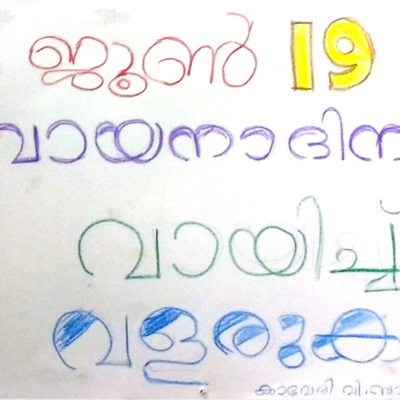 ജൂൺ 19
വായനാദിന
വായിച്ച്
വളരുക
കാവേരി വി.